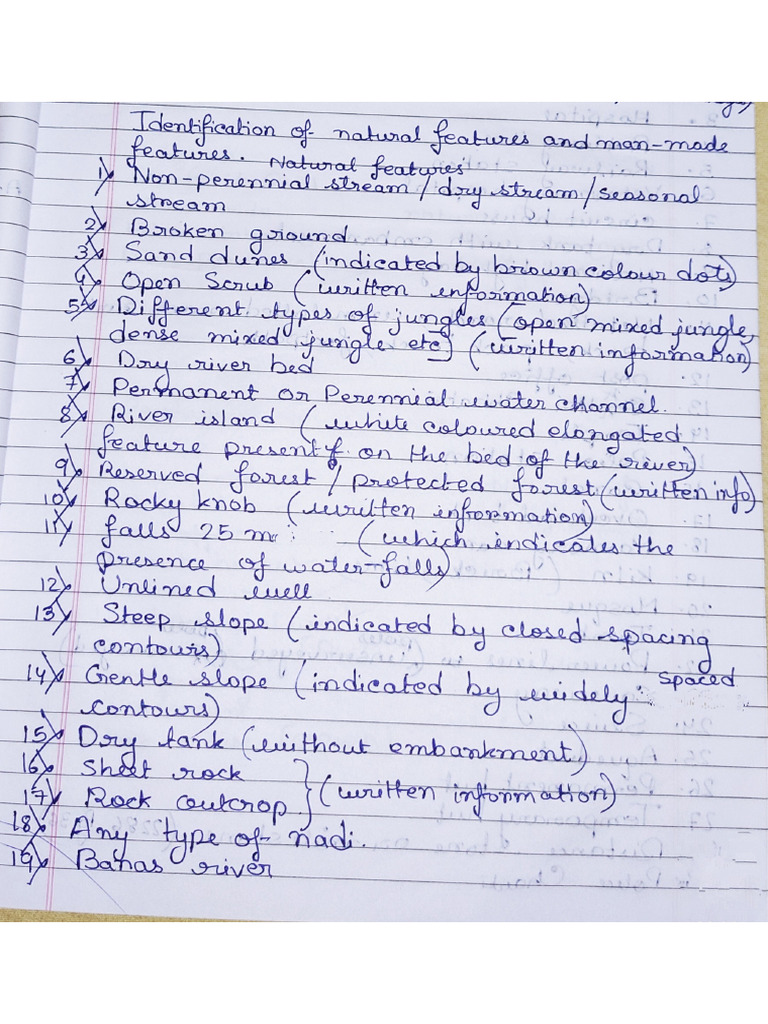 Identification of natural features and man-made
features. Natural features
1) Non-perennial stream / dry stream / seasonal
stream
2) Broken ground
3) Sand dunes (indicated by brown colour dots)
4) Open Scrub (written information)
5) Different types of jungles (open mixed jungle,
dense mixed jungle etc) (written information)
6) Dry river bed
7) Permanent or Perennial water channel.
8) River island (white coloured elongated
feature present on the bed of the river)
9) Reserved forest / protected forest (written info)
10) Rocky knob (written information)
11) falls 25 m (which indicates the
presence of water-falls).
12) Unlined well
13) Steep slope (indicated by closed spacing
contours)
14) Gentle slope (indicated by widely spaced
contours)
15) Dry tank (without embankment)
16) Sheet rock
17) Rock outcrop } (written information)
18) Any type of nadi.
19) Banas river